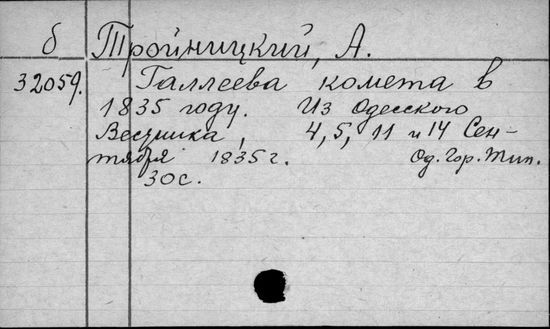 б Тройницкий, А.
32059. Галлеева комета в
1835 году. Из Одесского
Вестника, 4, 5, 11 и 14 Сен-
тября 1835 г. Од. Гор. Тип.
30 с.